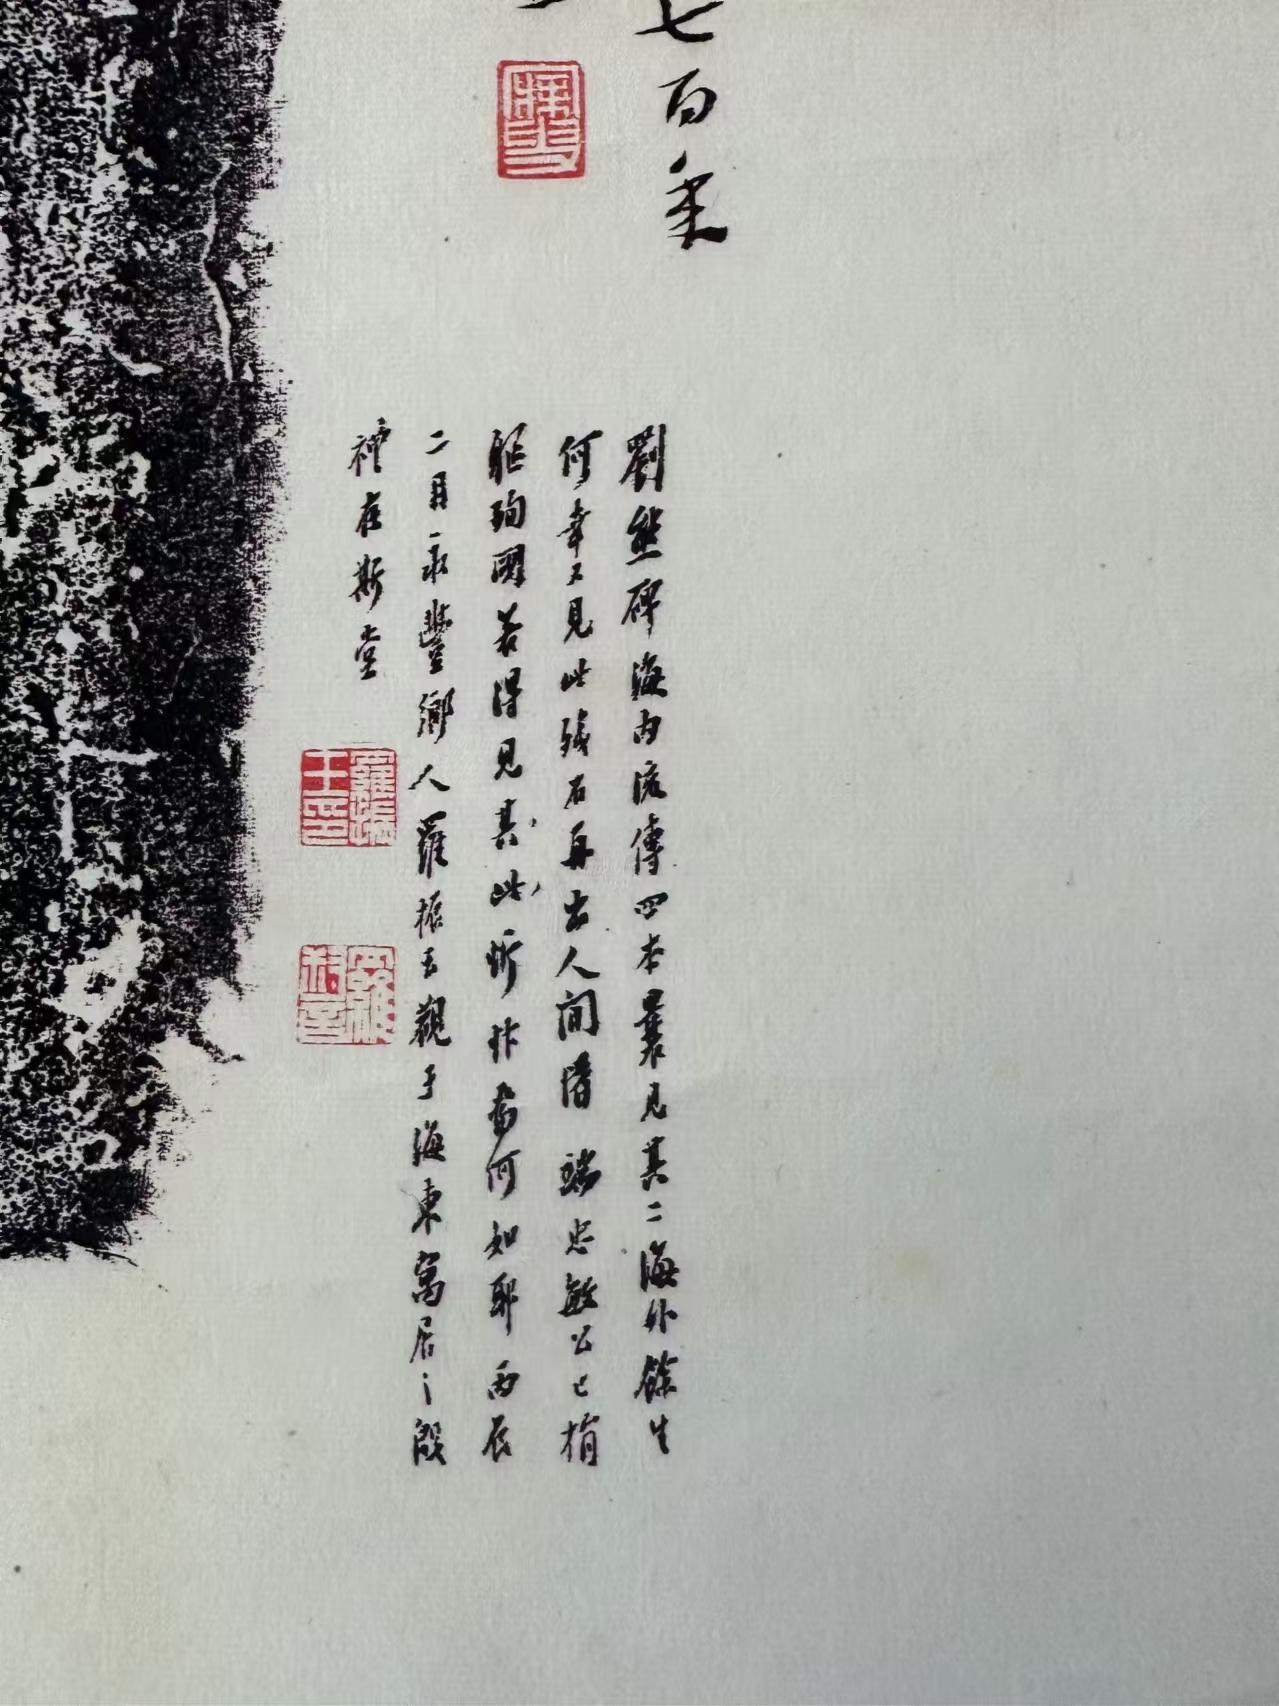 七百年
劉熊碑海內流傳四本曩見其二海外餘生
何幸又見此殘石再出人間惜端忠敏公已捐
軀殉國若得見其此忻忭當何如耶丙辰
二月永豐鄉人羅振玉觀于海東寓居之殷
禮在斯堂
羅振玉印